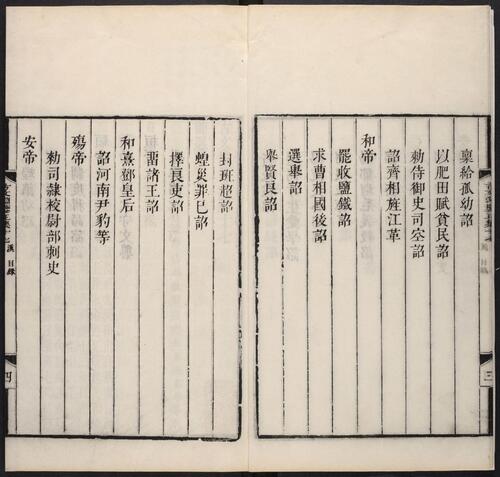 稟給孤幼詔
以肥田賦貧民詔
勑侍御史司空詔
詔齊相旌江革
和帝
罷收鹽鐵詔
求曹相國後詔
選舉詔
舉賢良詔
三
封班超詔
蝗災罪巳詔
擇良吏詔
畱諸王詔
和熹鄧皇后
詔河南尹豹等
殤帝
勑司隸校尉部刺史
安帝
目錄
四